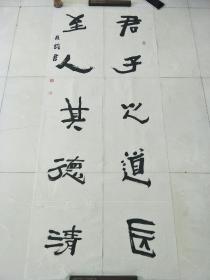 君子以道長
至人其德清